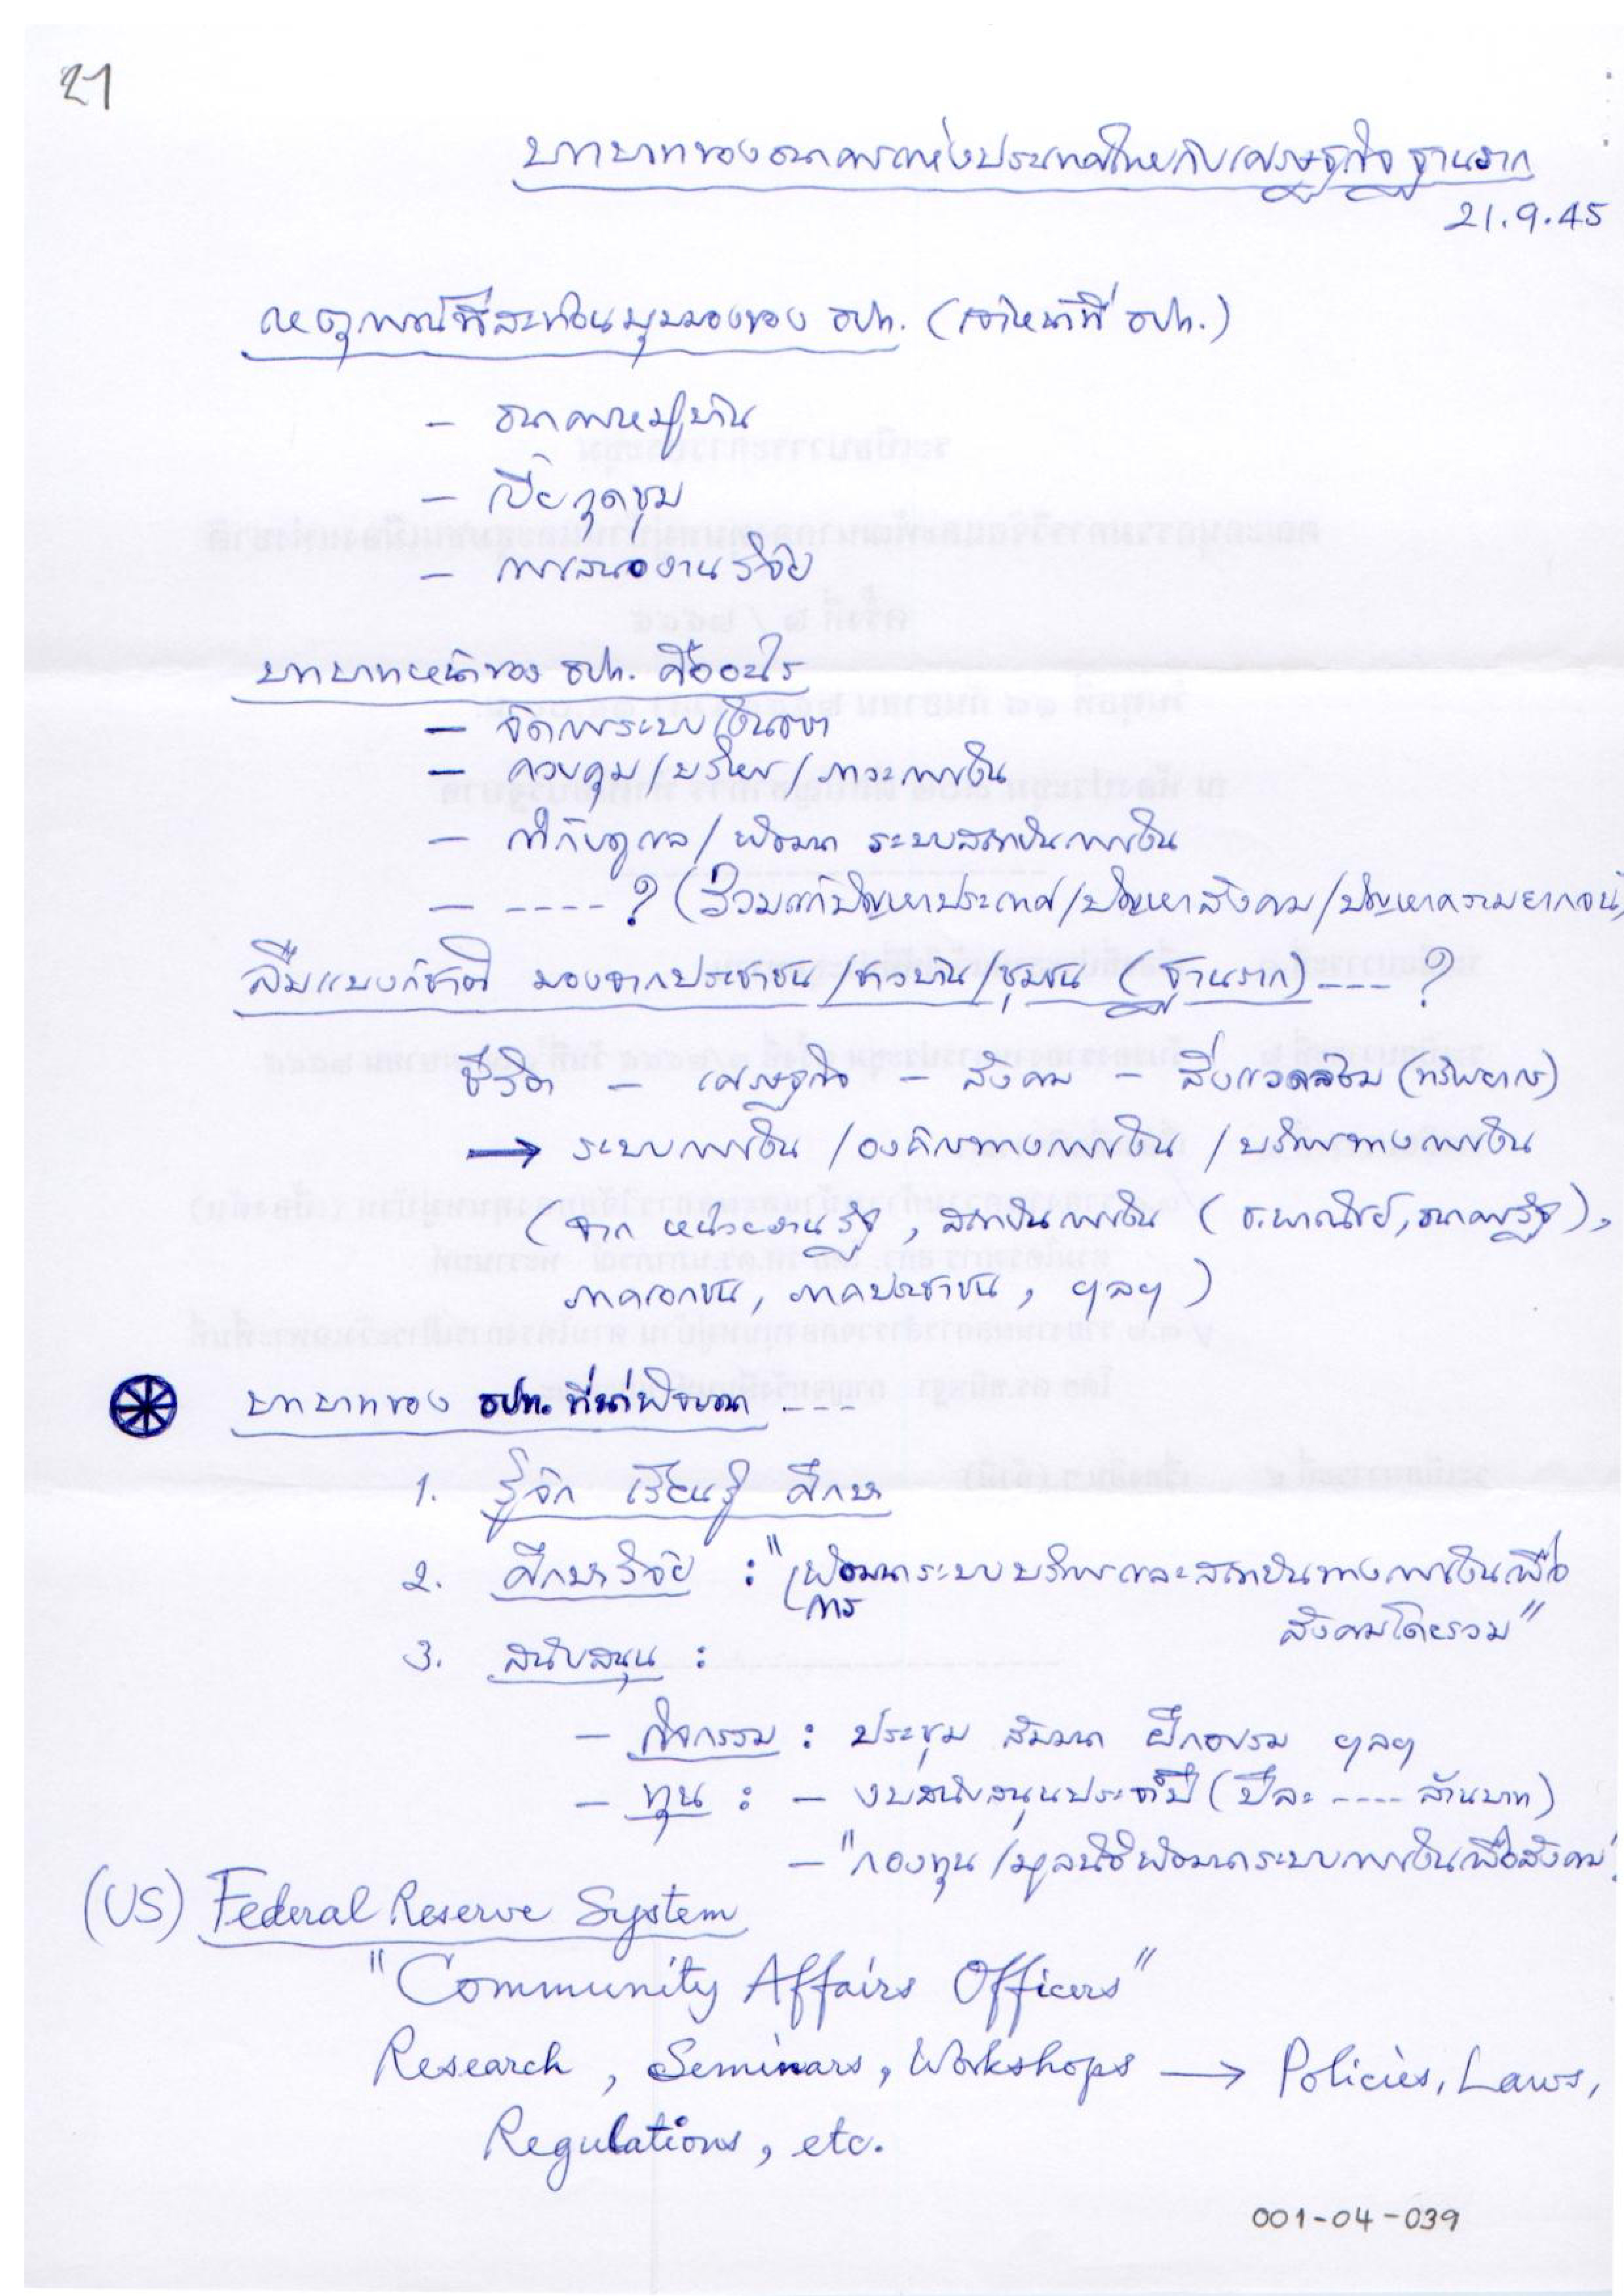 21
บทบาทของธนาคารแห่งประเทศไทยกับเศรษฐกิจฐานราก
21.9.45
เหตุการณ์ที่สะท้อนมุมมองของ ธปท. (เจ้าหน้าที่ ธปท.)
– ธนาคารหมู่บ้าน
– เบี้ยกุดชุม
– การเสนองานวิจัย
บทบาทหน้าที่ของ ธปท. คืออะไร
– จัดการระบบเงินตรา
– ควบคุม/บริหาร/ภาวะการเงิน
– กำกับดูแล/พัฒนา ระบบสถาบันการเงิน
– ---- ? (ร่วมแก้ปัญหาประเทศ/ปัญหาสังคม/ปัญหาความยากจน)
ลืมแบงก์ชาติ มองจากประชาชน/ชาวบ้าน/ชุมชน (ฐานราก) --- ?
ชีวิต – เศรษฐกิจ – สังคม – สิ่งแวดล้อม (ทรัพยากร)
→ ระบบการเงิน /องค์กรทางการเงิน /บริการทางการเงิน
(จาก หน่วยงานรัฐ, สถาบันการเงิน (ธ.พาณิชย์, ธนาคารรัฐ),
ภาคเอกชน, ภาคประชาชน, ฯลฯ)
บทบาทของ ธปท. ที่น่าพิจารณา ---
1. รู้จัก เรียนรู้ ศึกษา
2. ศึกษาวิจัย : "การพัฒนาระบบบริการและสถาบันทางการเงินเพื่อ
สังคมโดยรวม"
3. สนับสนุน :
– กิจกรรม : ประชุม สัมมนา ฝึกอบรม ฯลฯ
– ทุน : – งบสนับสนุนประจำปี (ปีละ ---- ล้านบาท)
– "กองทุน/มูลนิธิพัฒนาระบบการเงินเพื่อสังคม"
(US) Federal Reserve System
"Community Affairs Officers"
Research, Seminars, Workshops → Policies, Laws,
Regulations, etc.
001-04-039